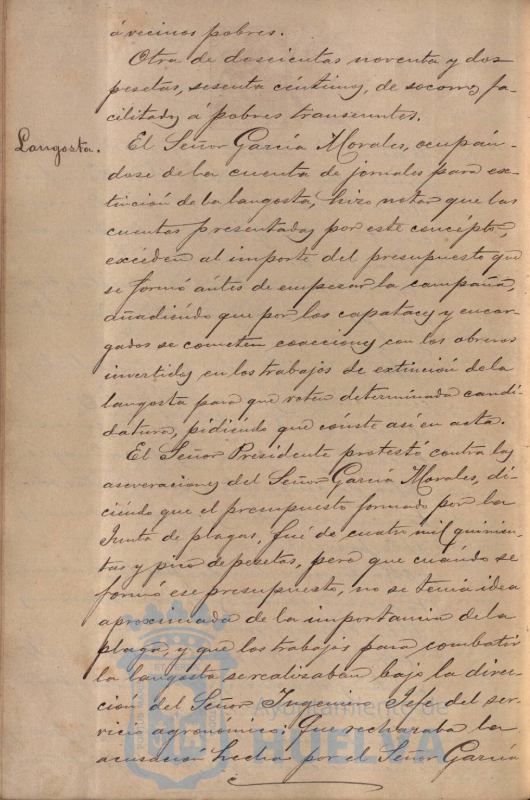 á vecinos pobres.
Otra de doscientas noventa y dos
pesetas, sesenta céntimos, de socorros fa-
cilitados á pobres transeuntes.
Langosta.
El Señor García Morales, ocupán-
dose de la cuenta de jornales para ex-
tinción de la langosta, hizo notar que las
cuentas presentadas por este concépto,
excéden al importe del presupuesto que
se formó ántes de empezar la campaña,
añadiéndo que por los capataces y encar-
gados se cometen coacciones con los obreros
invertidos en los trabajos de extinción de la
langosta para que voten determinada candi-
datura, pidiéndo que cónste así en acta.
El Señor Presidente protestó contra las
aseveraciones del Señor García Morales, di-
ciéndo que el presupuesto formado por la
Junta de plagas, fué de cuatro mil quinien-
tas y pico de pesetas, pero que cuándo se
formó ese presupuesto, no se tenía idea
aproximada de la importancia de la
plaga, y que los trabajos para combatir
la langosta se realizaban bajo la direc-
ción del Señor Ingeniero Jefe del ser-
vicio agronómico; que rechazaba la
acusación hecha por el Señor García
Ayuntamiento de
HUELVA